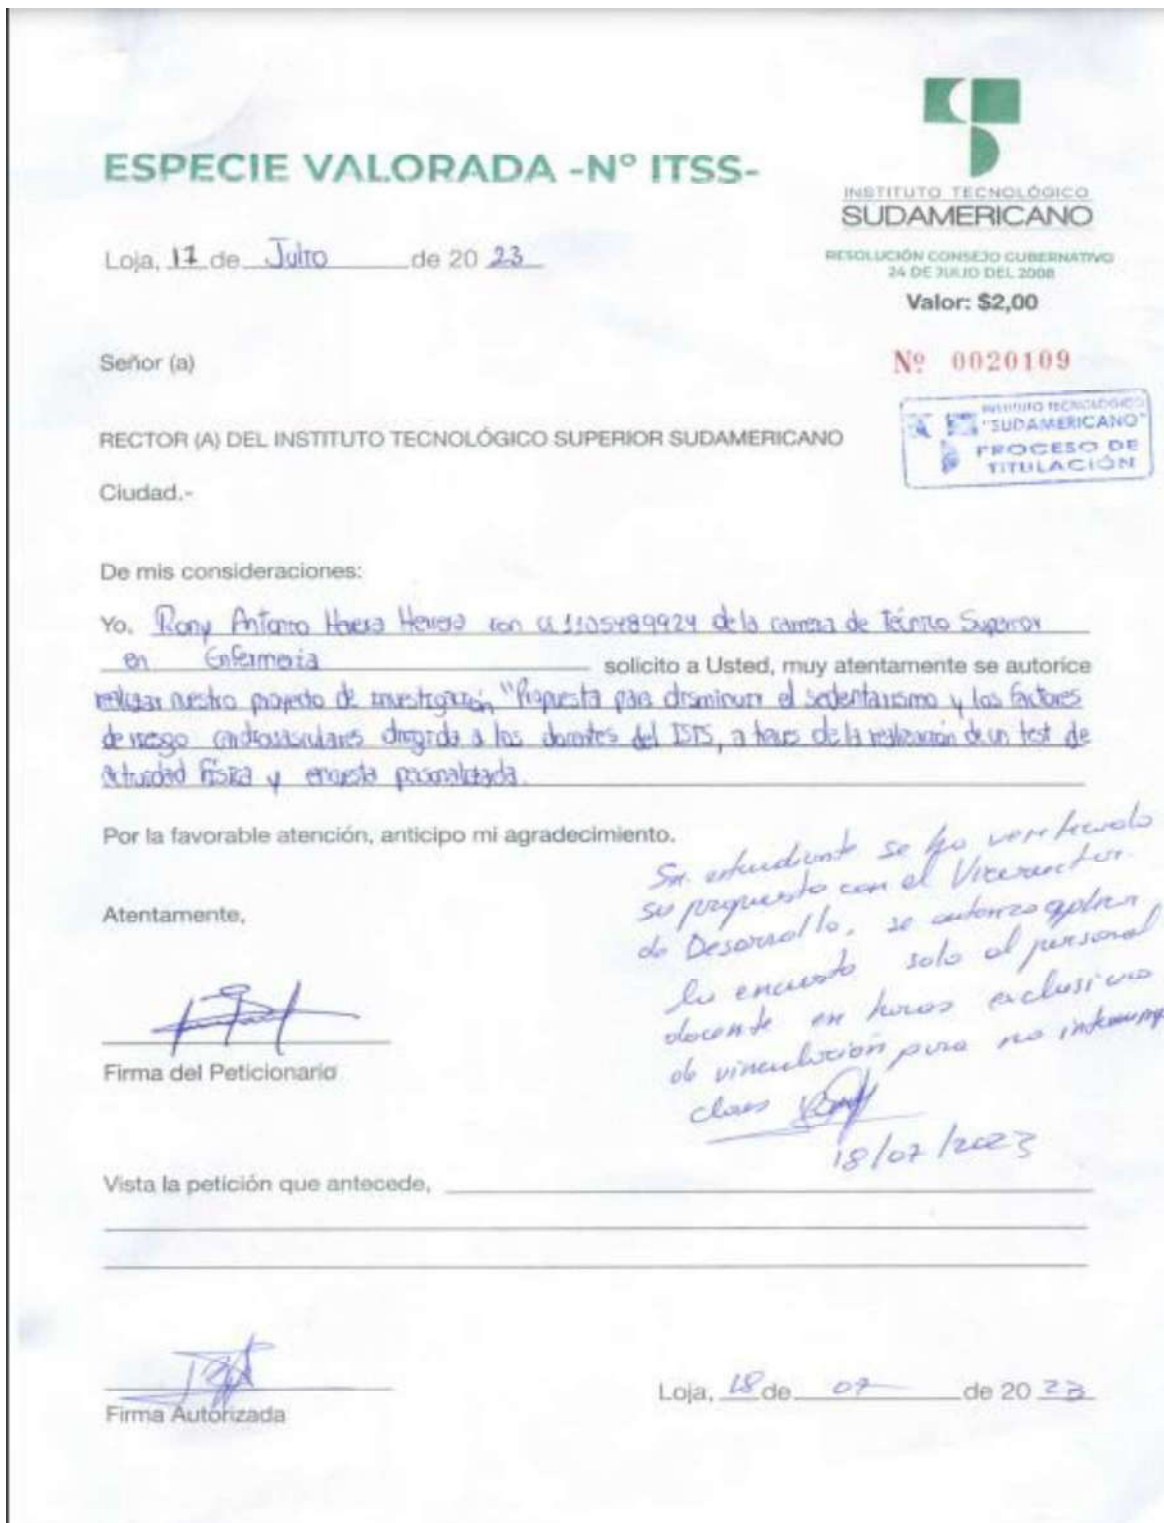 ESPECIE VALORADA -Nº ITSS-
INSTITUTO TECNOLÓGICO
SUDAMERICANO
RESOLUCIÓN CONSEJO GUBERNATIVO
24 DE JULIO DEL 2008
Valor: $2,00
Loja, 17 de Julio de 20 23
Señor (a)
Nº 0020109
INSTITUTO TECNOLÓGICO
"SUDAMERICANO"
PROCESO DE
TITULACIÓN
RECTOR (A) DEL INSTITUTO TECNOLÓGICO SUPERIOR SUDAMERICANO
Ciudad.-
De mis consideraciones:
Yo, Rony Antonio con CI 1105489924 de la carrera de Técnico Superior
en Enfermería solicito a Usted, muy atentamente se autorice
realizar nuestro proyecto de investigación "Propuesta para disminuir el sedentarismo y los factores
de riesgo cardiovasculares dirigida a los docentes del ISTS, a través de la realización de un test de
actividad física y encuesta personalizada.
Por la favorable atención, anticipo mi agradecimiento.
Sr. estudiante se ha verificado
su propuesta con el Vicerrector
de Desarrollo, se autoriza aplicar
la encuesta solo al personal
docente en horas exclusivas
de vinculación para no
clases
18/07/2023
Atentamente,
Firma del Peticionario
Vista la petición que antecede,
Firma Autorizada
Loja, 18 de 07 de 20 23